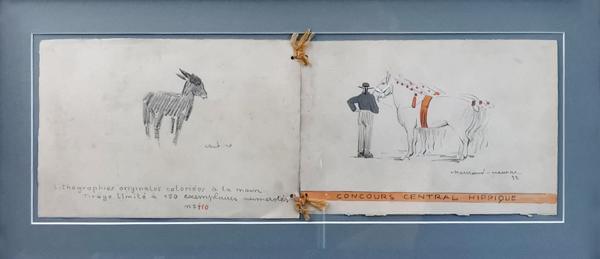 Lithographies originales coloriées à la main.
Tirage limité à 150 exemplaires numérotés
n° 110
CONCOURS CENTRAL HIPPIQUE